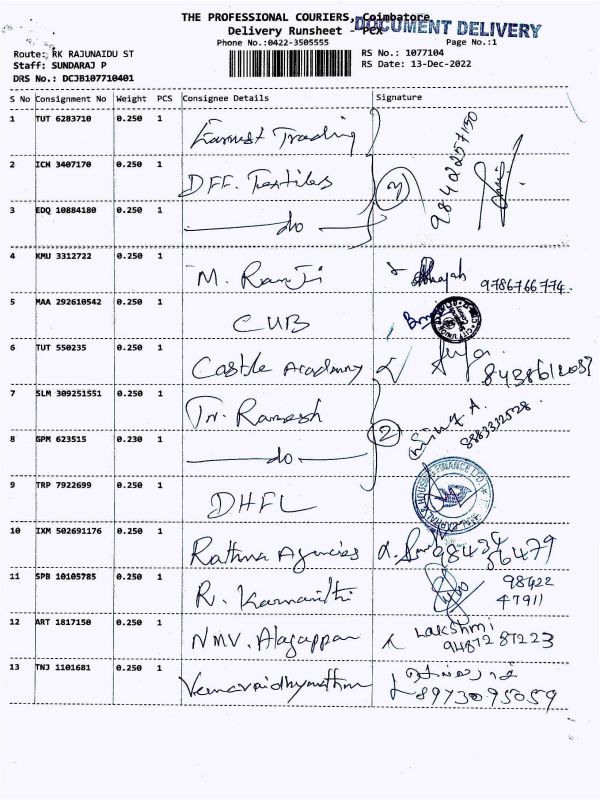 THE PROFESSIONAL COURIERS, Coimbatore
Delivery Runsheet - PCX
DOCUMENT DELIVERY
Phone No.:0422-3505555
Page No.:1
Route: RK RAJUNAIDU ST
RS No.: 1077104
Staff: SUNDARAJ P
RS Date: 13-Dec-2022
DRS No.: DCJB107710401
S No Consignment No Weight PCS Consignee Details Signature
1 TUT 6283710 0.250 1 Earnest Trading
9842257150
2 ICH 3407170 0.250 1 DFF. Textiles
3 EDQ 10884180 0.250 1 do
4 KMU 3312722 0.250 1 M. Ramji 9786766774.
5 MAA 292610542 0.250 1 CUB
6 TUT 550235 0.250 1 Castle Academy
7 SLM 309251551 0.250 1 Tr. Ramesh
2
8883332528
8 GPM 623515 0.230 1 do
9 TRP 7922699 0.250 1 DHFL
10 IXM 502691176 0.250 1 Rathna Agencies
11 SPB 10105785 0.250 1 98422
47911
12 ART 1817150 0.250 1 NMV. Alagappan Lakshmi
9487287223
13 TNJ 1101681 0.250 1 8973095059